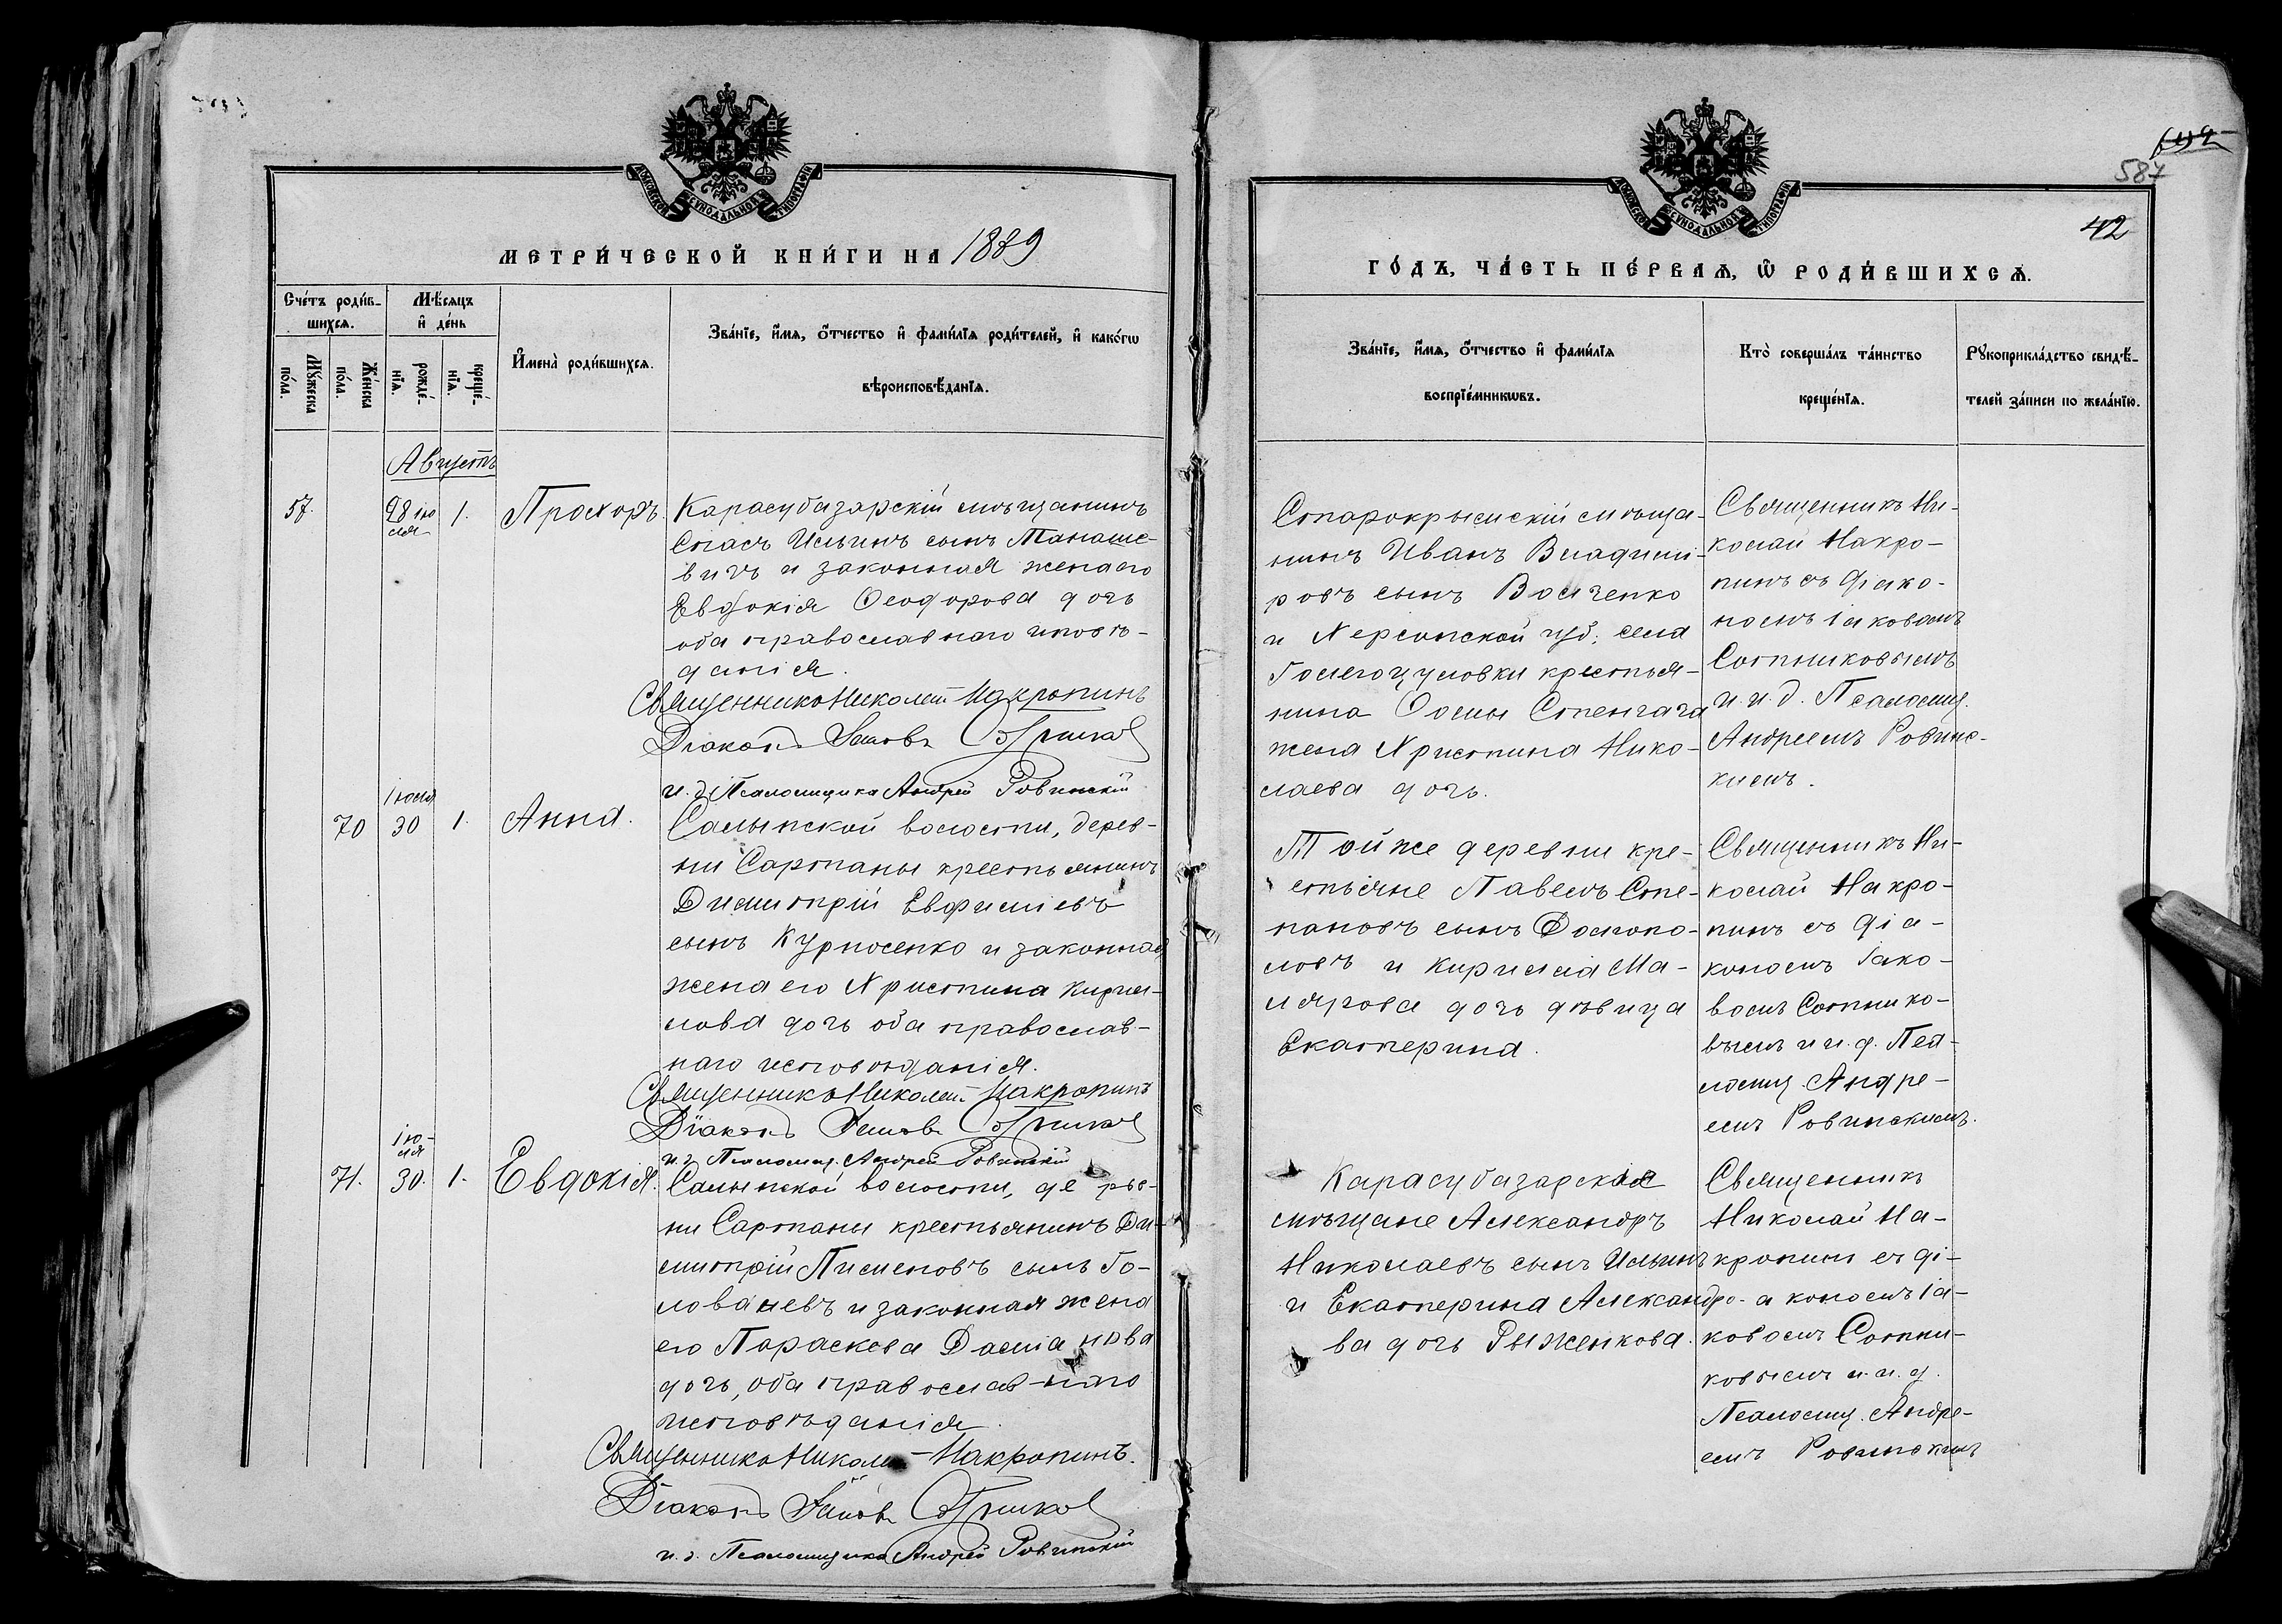 МОСКОВСКОЙ СѴНОДАЛЬНОЙ ТИПОГРАФІИ
МЕТРИ́ЧЕСКОЙ КНИ́ГИ НА 1889
Сче́тъ роди́в-
шихсѧ.
Мѣ́сѧцъ
и҆ де́нь
Мꙋ́жеска
по́ла.
Же́нска
по́ла.
рожде́-
нїѧ.
креще́-
нїѧ.
И҆мена̀ роди́вшихсѧ.
Зва́нїе, и҆́мѧ, ѻ҆́тчество и҆ фами́лїѧ роди́телей, и҆ како́гѡ
вѣроисповѣ́данїѧ.
Августъ
57.
28 ію
ля
1.
Прохоръ.
Карасубазарскій мѣщанинъ
Спасъ Ильинъ сынъ Танаше-
вичъ и законная жена его
Евдокія Ѳеодорова дочь
оба православнаго исповѣ-
данія.
Священникъ Николай Макропинъ
Діаконъ Іаковъ Сотников
и. д. Псаломщика Андрей Ровинскій
70
іюля
30
1.
Анна.
Салынской волости, дерев-
ни Сартаны крестьянинъ
Димитрій Евфиміевъ
сынъ Курносенко и законная
жена его Христина Кирил-
лова дочь оба православ-
наго исповѣданія.
Священникъ Николай Макропинъ
Діаконъ Іаковъ Сотников
и. д. Псаломщ. Андрей Ровинскій
71.
ію-
ля
30.
1.
Евдокія.
Салынской волости, дерев-
ни Сартаны крестьянинъ Ди-
митрій Пименовъ сынъ Го-
лованевъ и законная жена
его Параскева Даміанова
дочь, оба православнаго
исповѣданія.
Священникъ Николай Макропинъ.
Діаконъ Іаковъ Сотников
и. д. Псаломщика Андрей Ровинскій
587
42
МОСКОВСКОЙ СѴНОДАЛЬНОЙ ТИПОГРАФІИ
ГО́ДЪ, ЧА́СТЬ ПЕ́РВАѦ, Ѽ РОДИ́ВШИХСѦ.
Зва́нїе, и҆́мѧ, ѻ҆́тчество и҆ фами́лїѧ
воспрїе́мникѡвъ.
Кто̀ соверша́лъ та́инство
креще́нїѧ.
Рꙋкоприкла́дство свидѣ́-
телей за́писи по жела́нїю.
Старокрымскій мѣща-
нинъ Иванъ Владимі-
ровъ сынъ Волченко
и Херсонской губ. села
крестья-
нина
жена Христина Нико-
лаева дочь.
Священникъ Ни-
колай Макро-
пинъ съ діако-
номъ Іаковомъ
Сотниковымъ
и и. д. Псаломщ.
Андреемъ Ровинс-
кимъ.
Той же деревни кре-
стьяне Павелъ Сте-
пановъ сынъ Долгопо-
ловъ и Кирилла Ма-
лярова дочь дѣвица
Екатерина.
Священникъ Ни-
колай Макро-
пинъ съ діа-
кономъ Іако-
вомъ Сотнико-
вымъ и и. д. Пса-
ломщ. Андре-
емъ Ровинскимъ.
Карасубазарскіе
мѣщане Александръ
Николаевъ сынъ Ильинъ
и Екатерина Александро-
ва дочь Рыженкова.
Священникъ
Николай Ма-
кропинъ съ ді-
акономъ Іа-
ковомъ Сотни-
ковымъ и и. д.
Псаломщ. Андре-
емъ Ровинскимъ